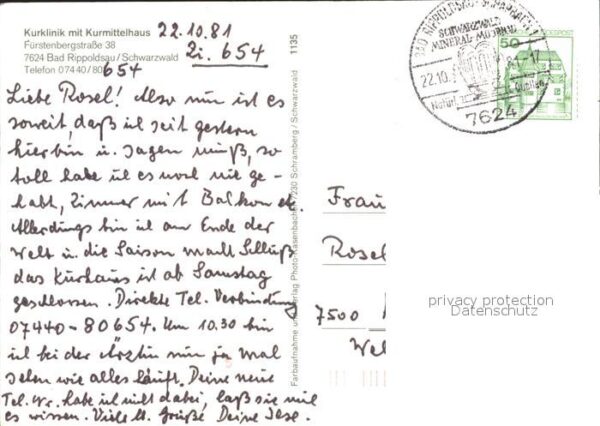 Kurklinik mit Kurmittelhaus
Fürstenbergstraße 38
7624 Bad Rippoldsau/Schwarzwald
Telefon 07440/80654
22.10.81
Zi. 654
Liebe Rosel! Also nun ist es
soweit, daß ich seit gestern
hierbin u. sagen muß, so
toll habe ich es noch nie ge-
habt, Zimmer mit Balkon etc.
Allerdings bin ich am Ende der
Welt u. die Saison macht Schluß
das Kurhaus ist ab Samstag
geschlossen. Direkte Tel. Verbindung
07440-80654. Um 10.30 bin
ich bei der Ärztin nun ja mal
sehen wie alles läuft. Deine neue
Tel. Nr. habe ich nicht dabei, laß sie mich
es wissen. Viele Grüße Deine
1135
Farbaufnahme und Verlag Photo-Kasenbacher, 7230 Schramberg/Schwarzwald
BAD RIPPOLDSAU-SCHAPBACH
SCHWARZWALD
MINERAL-MUSEUM
22.10.81-17
7624
50
Frau
Rosel
7500
Wel
privacy protection
Datenschutz